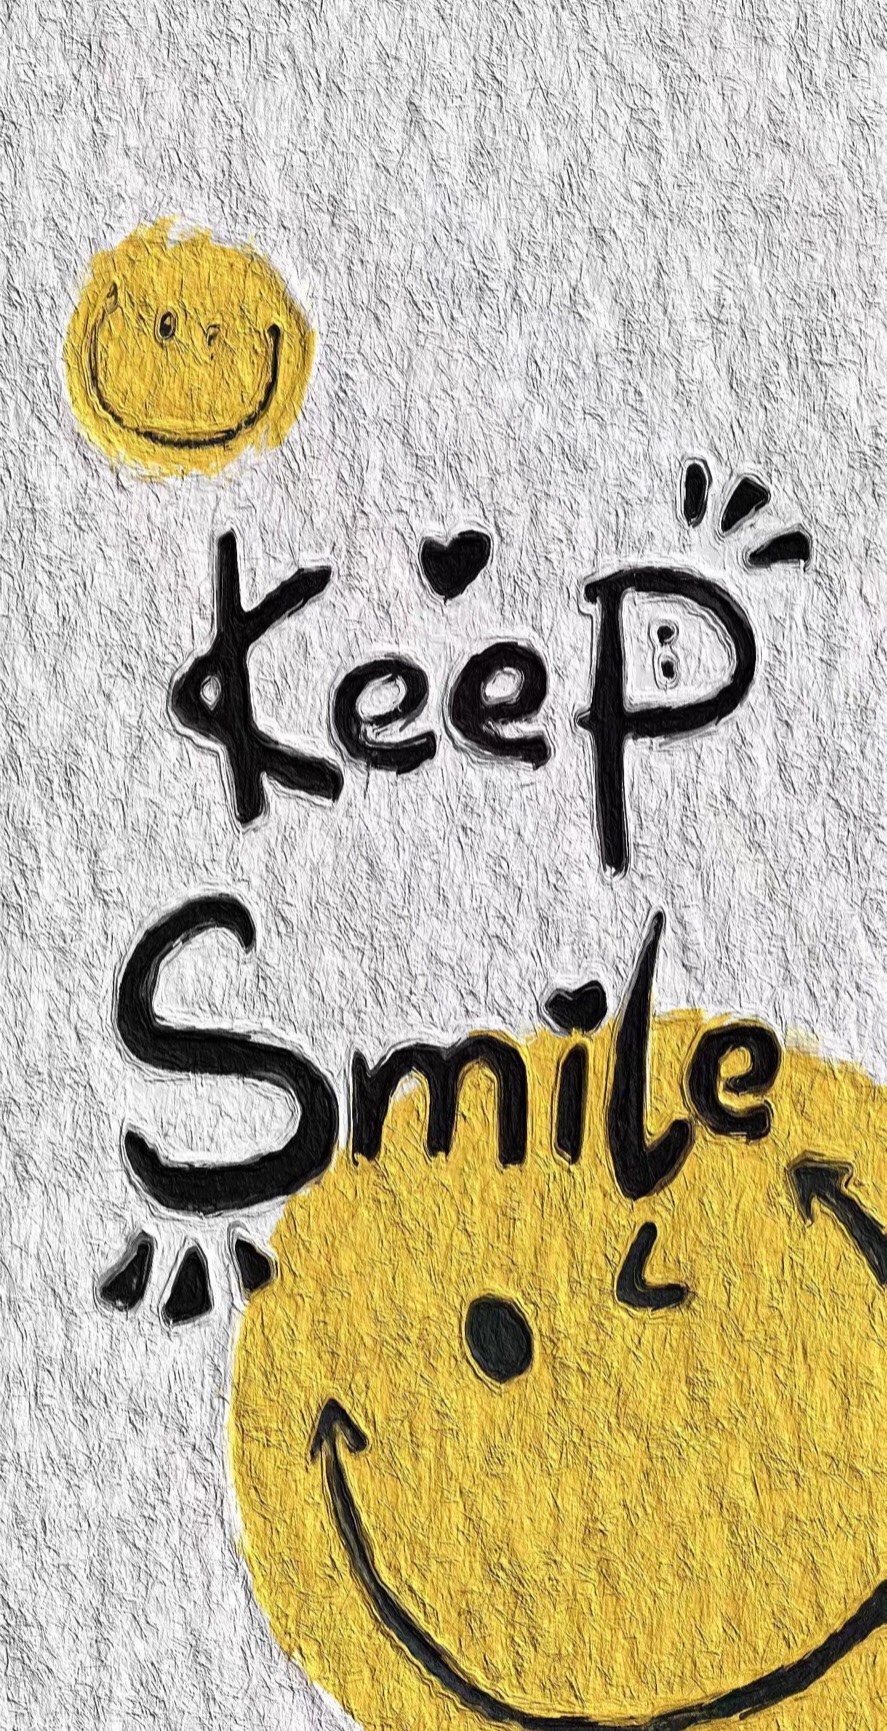 KeeP
Smile